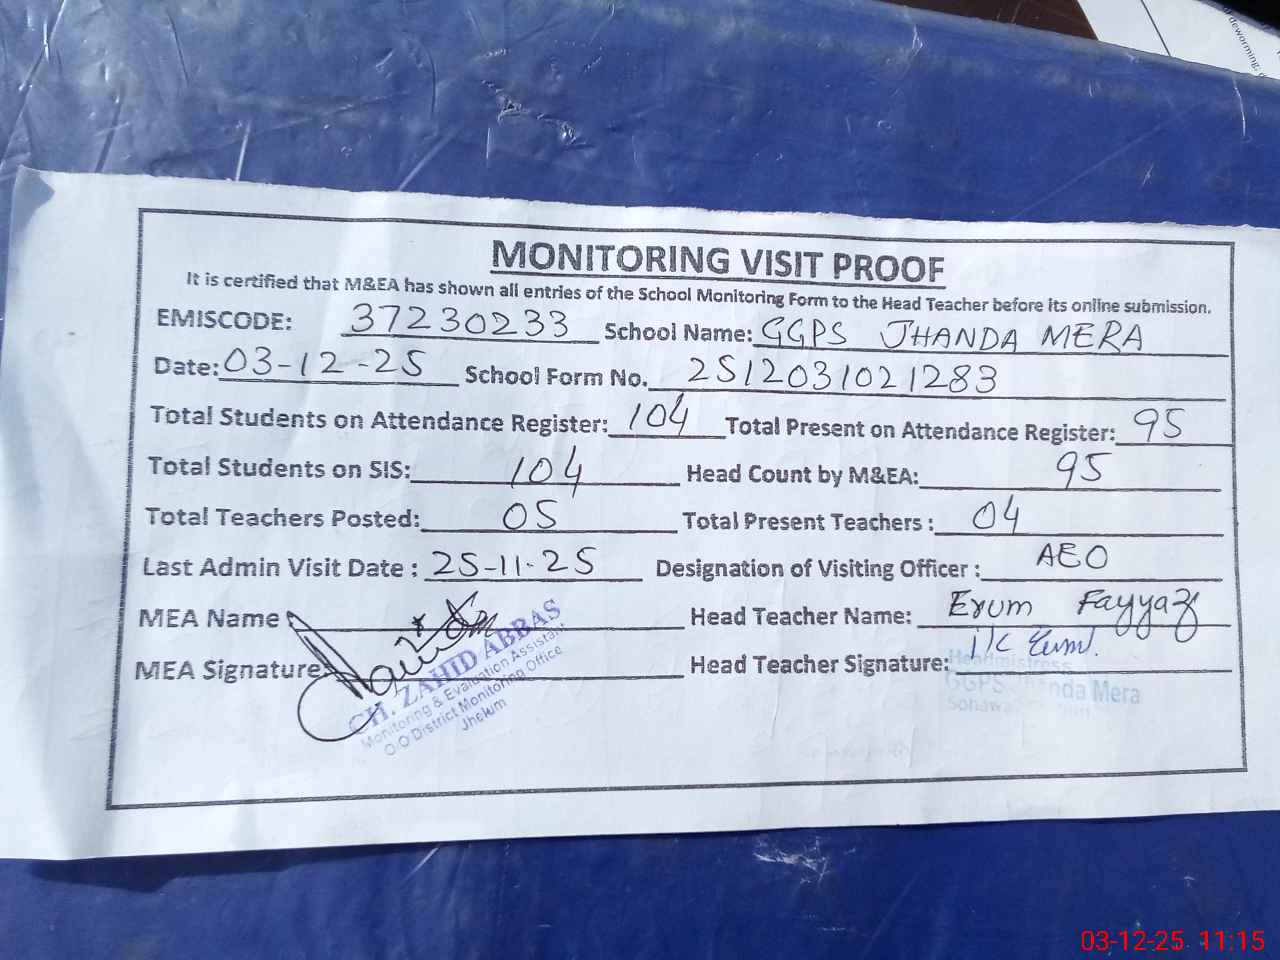 deworming,
MONITORING VISIT PROOF
It is certified that M&EA has shown all entries of the School Monitoring Form to the Head Teacher before its online submission.
EMISCODE: 37230233 School Name: GGPS JHANDA MERA
Date: 03-12-25 School Form No. 2512031021283
Total Students on Attendance Register: 104 Total Present on Attendance Register: 95
Total Students on SIS: 104 Head Count by M&EA: 95
Total Teachers Posted: 05 Total Present Teachers : 04
Last Admin Visit Date : 25-11-25 Designation of Visiting Officer : AEO
MEA Name Head Teacher Name: Erum Fayyaz
MEA Signature: Head Teacher Signature: I/C Erum.
CH. ZAHID ABBAS
Monitoring & Evaluation Assistant
O/O District Monitoring Office
Jhelum
Headmistress
GGPS Jhanda Mera
Sohawa
03-12-25 11:15